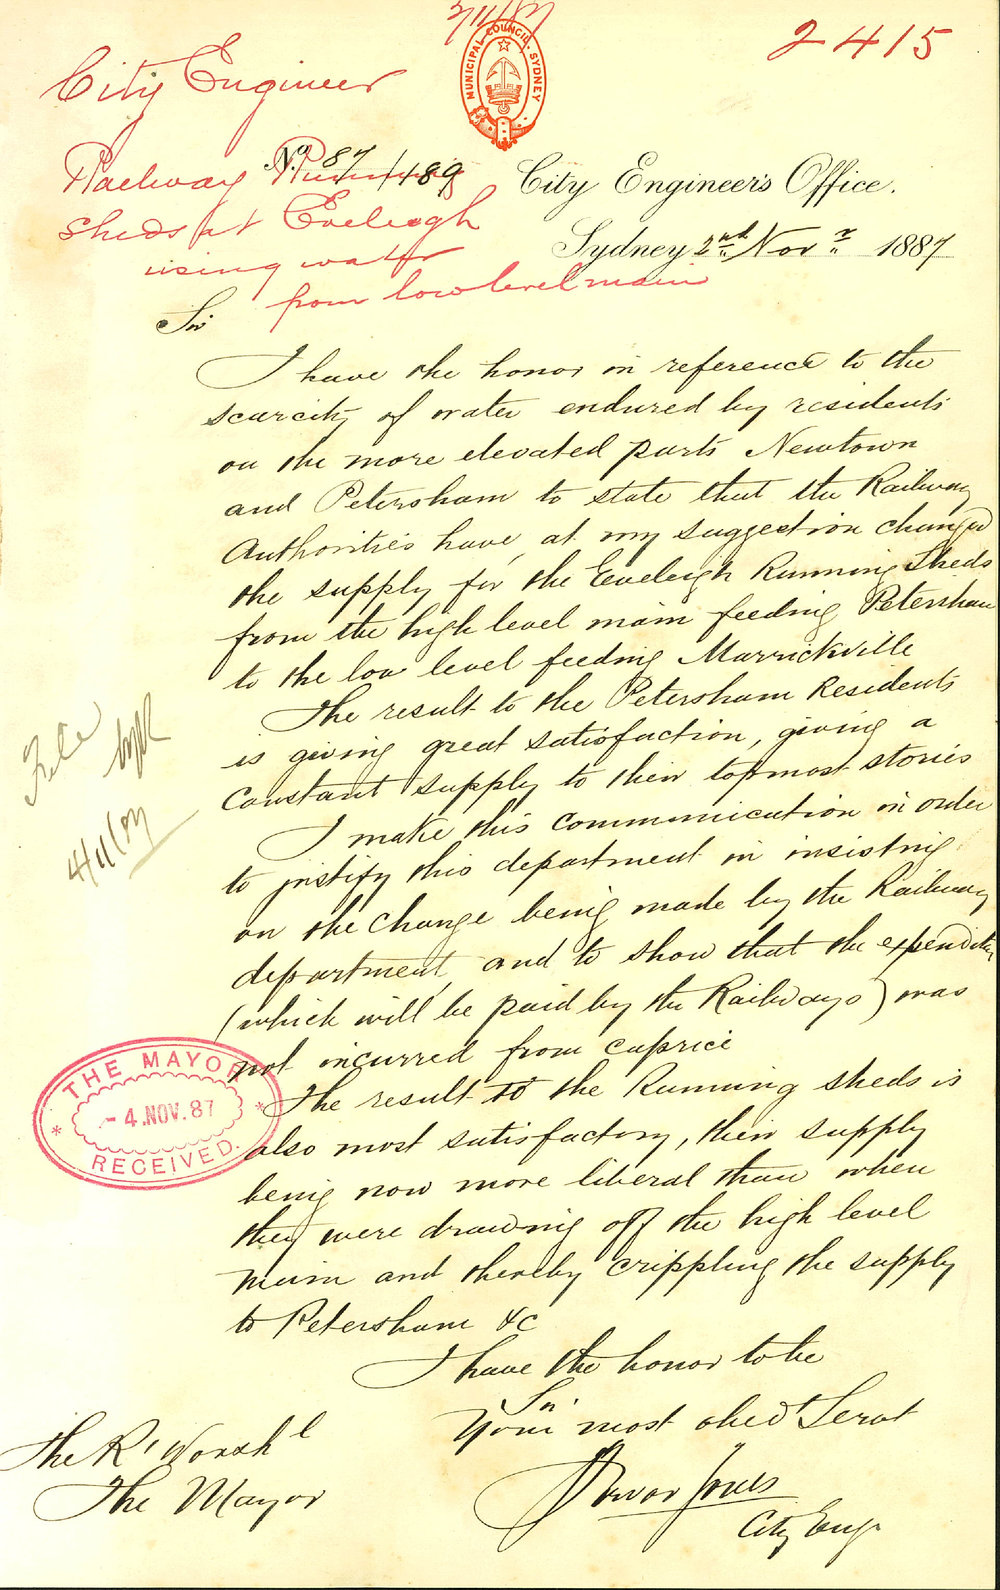 2/11/87
2415
MUNICIPAL COUNCIL. SYDNEY
City Engineer
Railway Running
Sheds at Eveleigh
using water
from low level main
No. 87/1489
City Engineer's Office.
Sydney 2nd Novr 1887
Sir
I have the honor in reference to the
scarcity of water endured by residents
on the more elevated parts Newtown
and Petersham to state that the Railway
Authorities have, at my suggestion changed
the supply for the Eveleigh Running Sheds
from the high level main feeding Petersham
to the low level feeding Marrickville
The result to the Petersham Residents
is giving great satisfaction, giving a
constant supply to their topmost stories
I make this communication in order
to justify this department in insisting
on the change being made by the Railway
department, and to show that the expenditure
(which will be paid by the Railways) was
not incurred from caprice
The result to the Running sheds is
also most satisfactory, their supply
being now more liberal than when
they were drawing off the high level
main and thereby crippling the supply
to Petersham &c
I have the honor to be
Sir
Your most obedt Servt
Trevor Jones
City Engr
The Rt Worshl
The Mayor
File
4/11/87
THE MAYOR
- 4.NOV.87
RECEIVED.